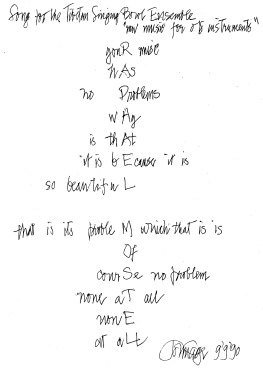 Song for the Tibetan Singing Bowl Ensemble
"new music for old instruments"
youR music
hAs
no Problems
wHy
is thAt
it is bEcause it is
so beautifuL
that is its probleM which that is is
Of
courSe no problem
none aT all
nonE
at aLL
9'9'90